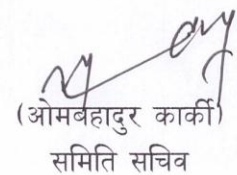 (ओमबहादुर कार्की)
समिति सचिव